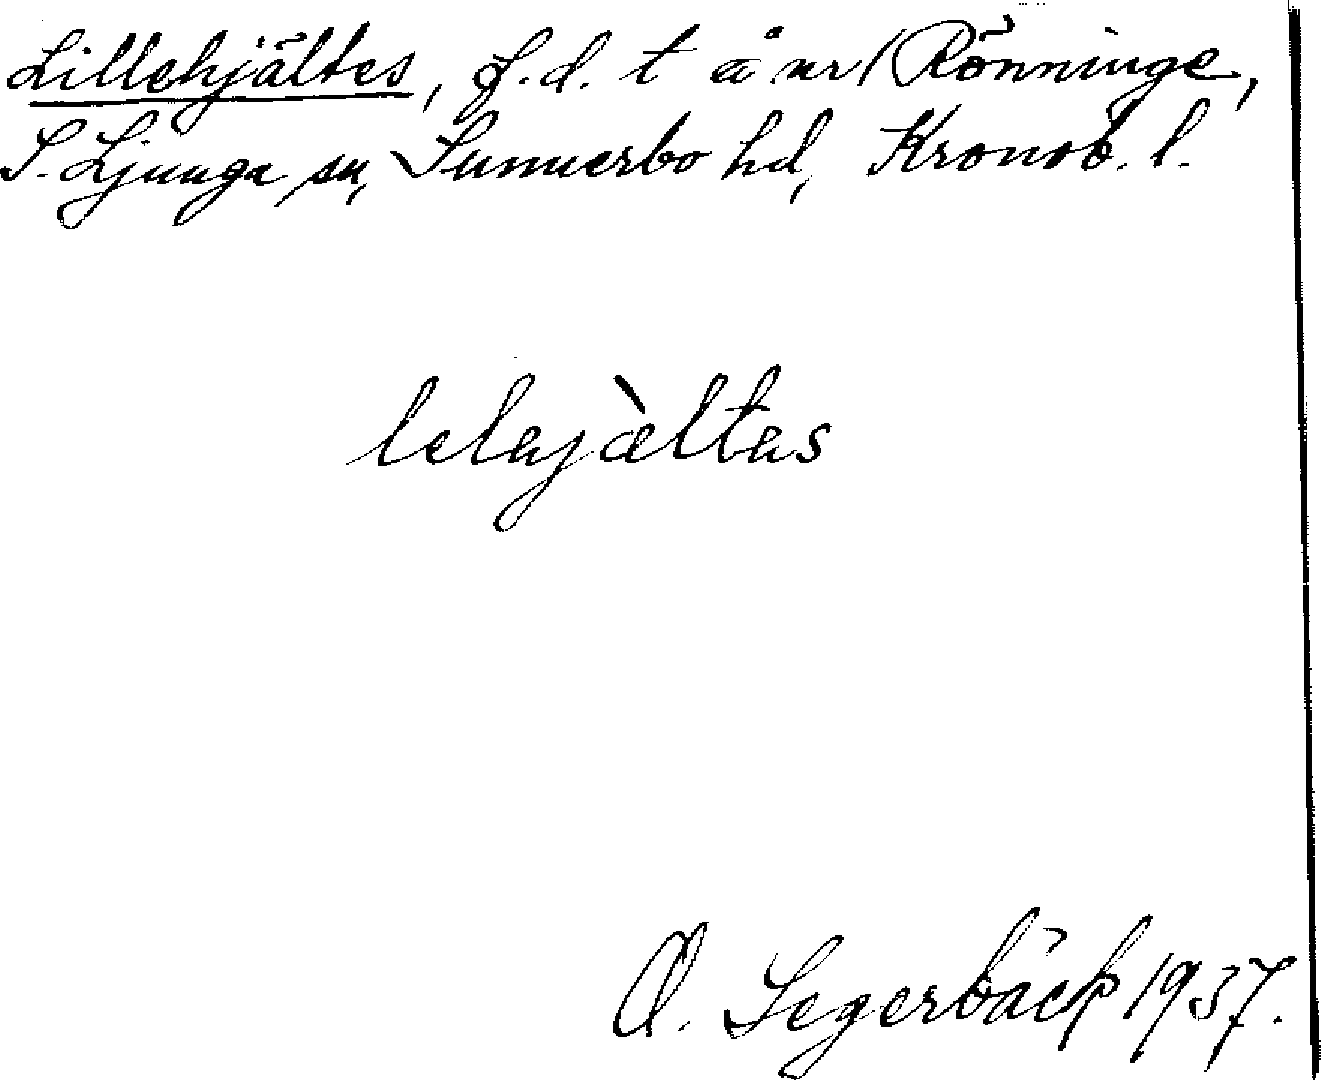 Lillehjältes, f.d. t å nr 1 Rönninge,
S. Ljunga sn, Sunnerbo hd, Kronob. l.
lelajæ̀ltas
O. Segerbäck 1937.